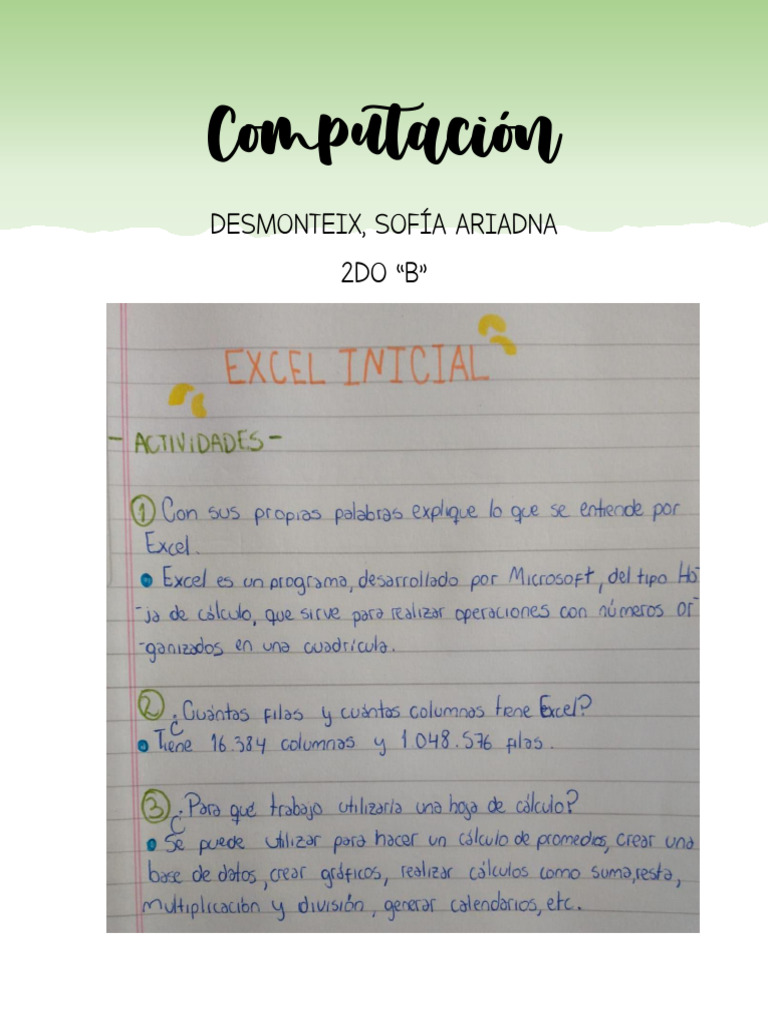 Computación
DESMONTEIX, SOFÍA ARIADNA
2DO “B”
EXCEL INICIAL
- ACTIVIDADES -
1 Con sus propias palabras explique lo que se entiende por
Excel.
• Excel es un programa, desarrollado por Microsoft, del tipo Ho-
-ja de cálculo, que sirve para realizar operaciones con números or-
-ganizados en una cuadrícula.
2 ¿Cuántas filas y cuántas columnas tiene Excel?
• Tiene 16.384 columnas y 1.048.576 filas.
3 ¿Para que trabajo utilizaría una hoja de cálculo?
• Se puede utilizar para hacer un cálculo de promedios, crear una
base de datos, crear gráficos, realizar cálculos como suma, resta,
multiplicación y división, generar calendarios, etc.